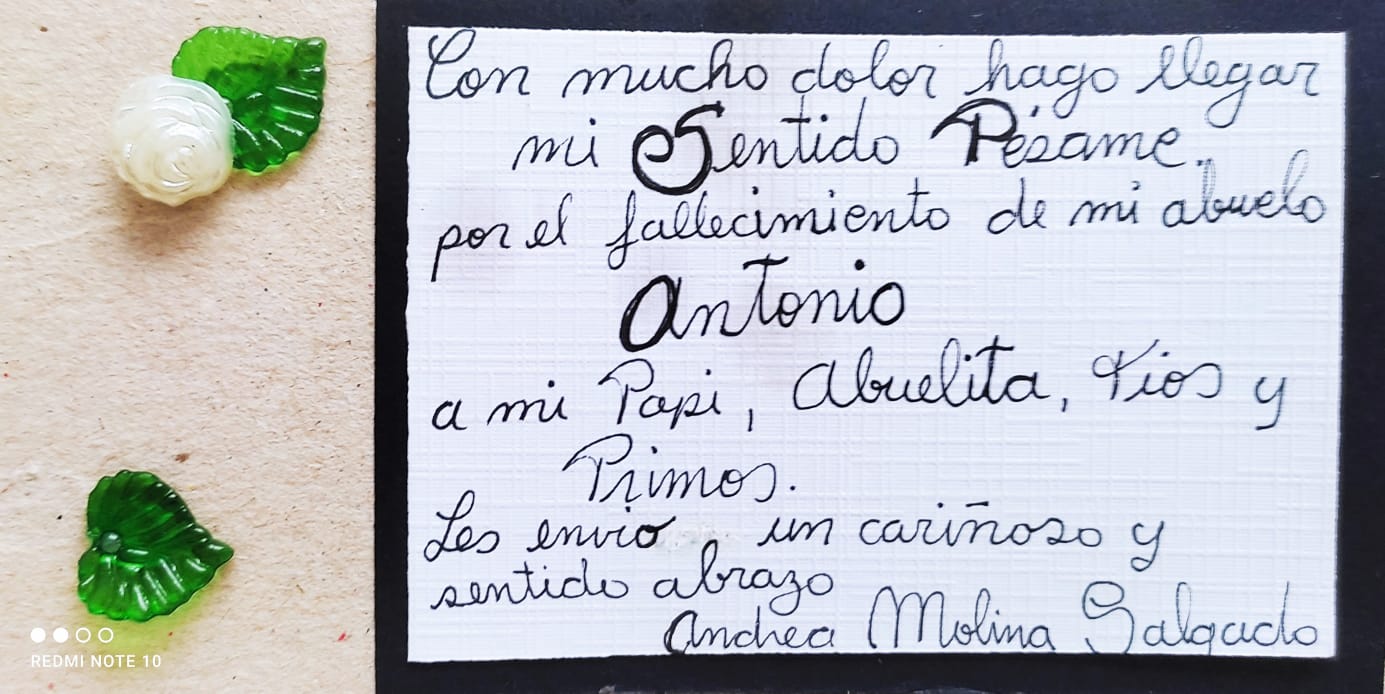 Con mucho dolor hago llegar
mi Sentido Pésame
por el fallecimiento de mi abuelo
Antonio
a mi Papi, Abuelita, Tios y
Primos.
Les envio un cariñoso y
sentido abrazo
Andrea Molina Salgado
REDMI NOTE 10